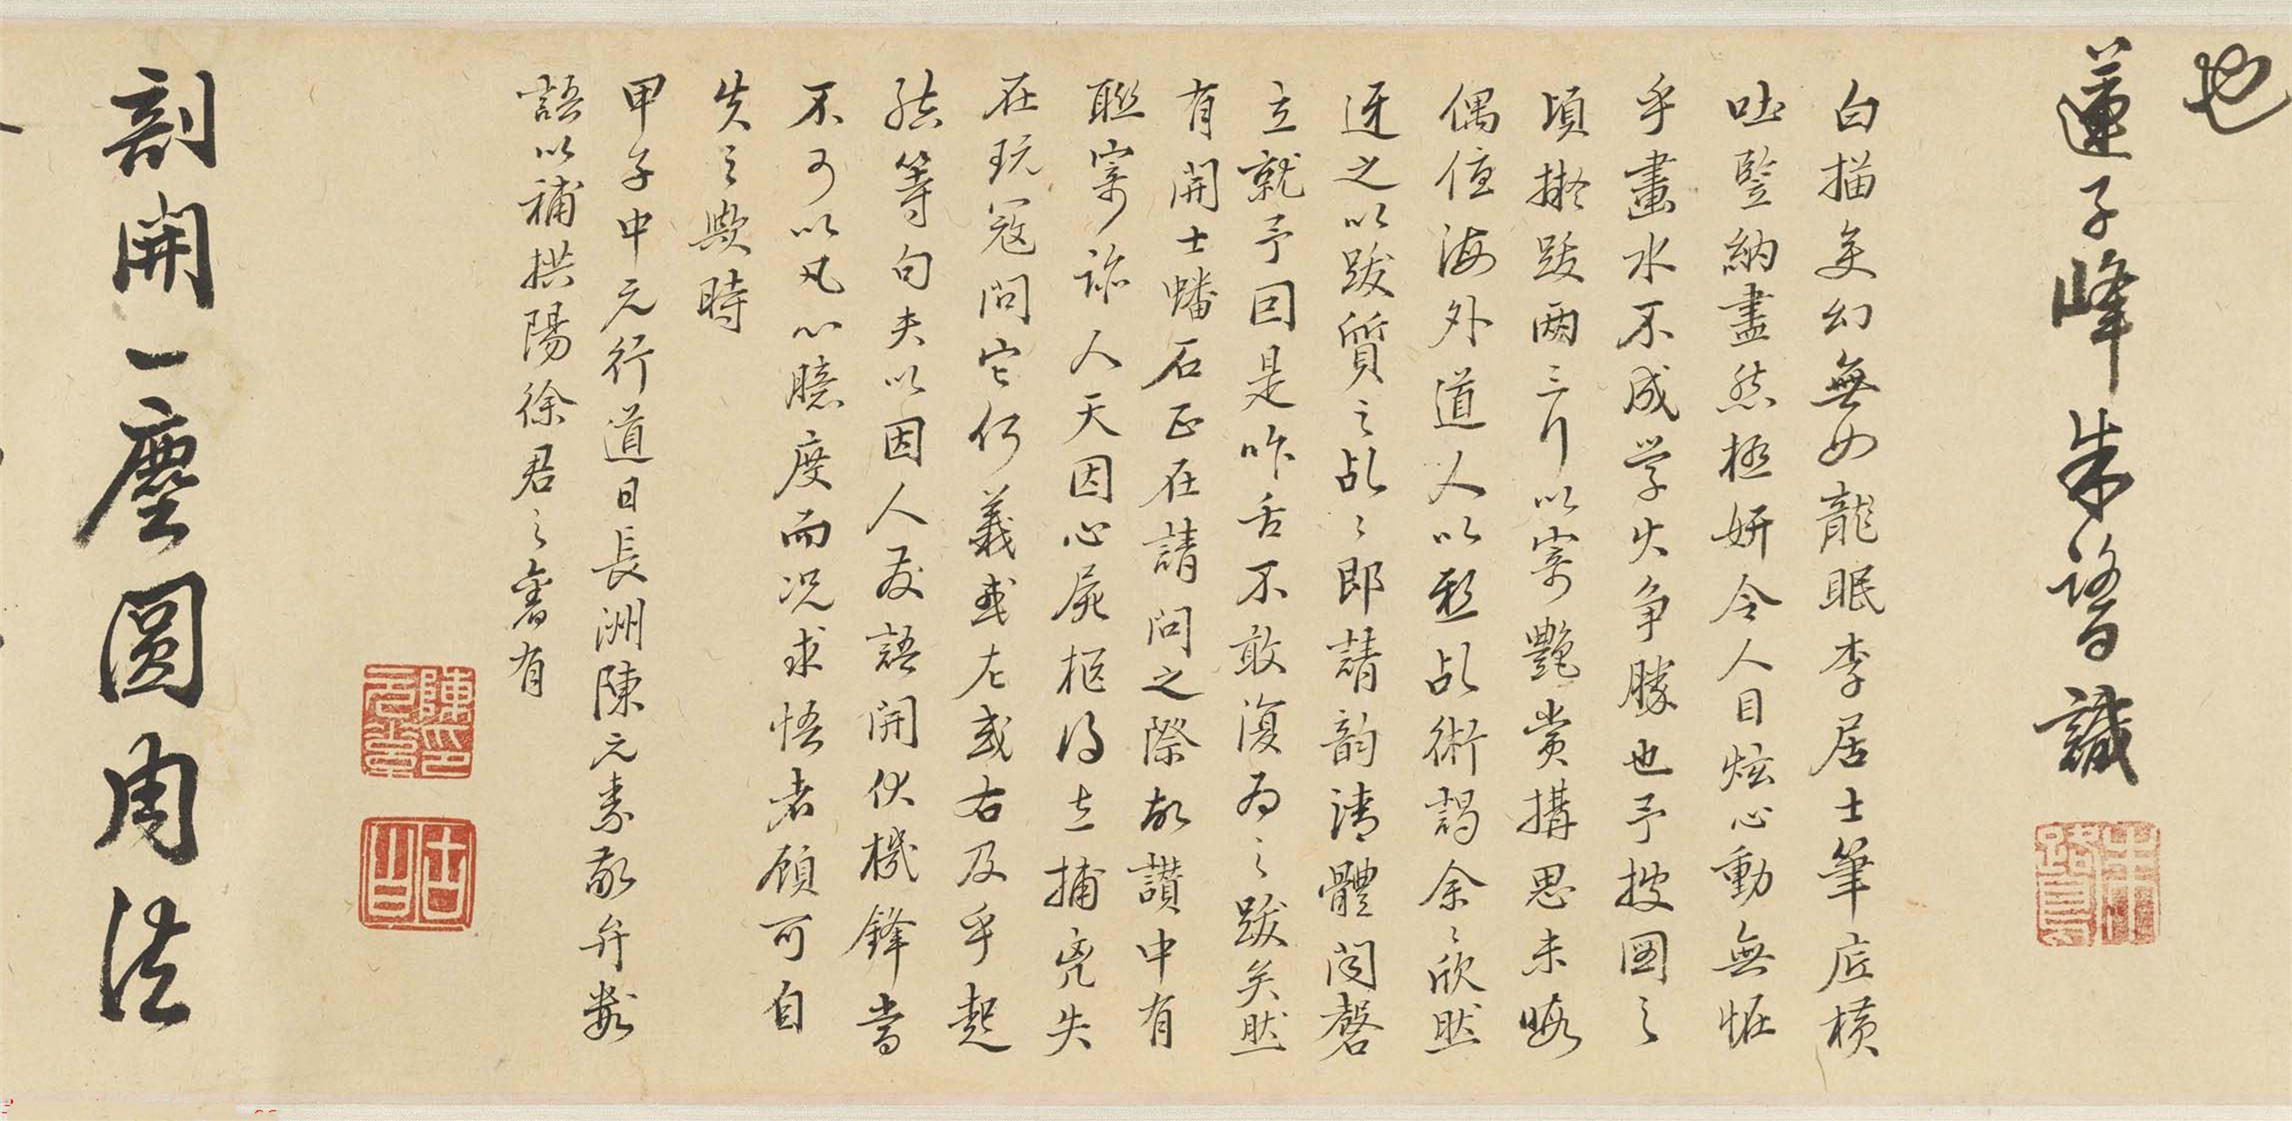 也
蓮子峰朱鷺識
白描美幻無如龍眠李居士筆底橫
吐豎納盡態極妍令人目炫心動無恠
乎畫水不成学火争勝也予披圖之
頃擬跋兩三行以寄艷賞搆思未暇
偶值海外道人以乩術謁余余欣然
迓之以跋質之乩乩即請韵清體閟磬
立就予回是咋舌不敢復為之跋矣然
有開士蟠石正在請問之際故讚中有
聯寄諦人天因心屍柩得立捕嵬失
在玩寇問它何義或左或右及乎起
結等句夫以因人友語開伏機鋒當
不可以凡心臆度而况求悟者顧可自
失之歟時
甲子中元行道日長洲陳元素敬弁數
語以補拱陽徐君之書有
陳印元素
古白
朱鷺
剖開一塵圓周法